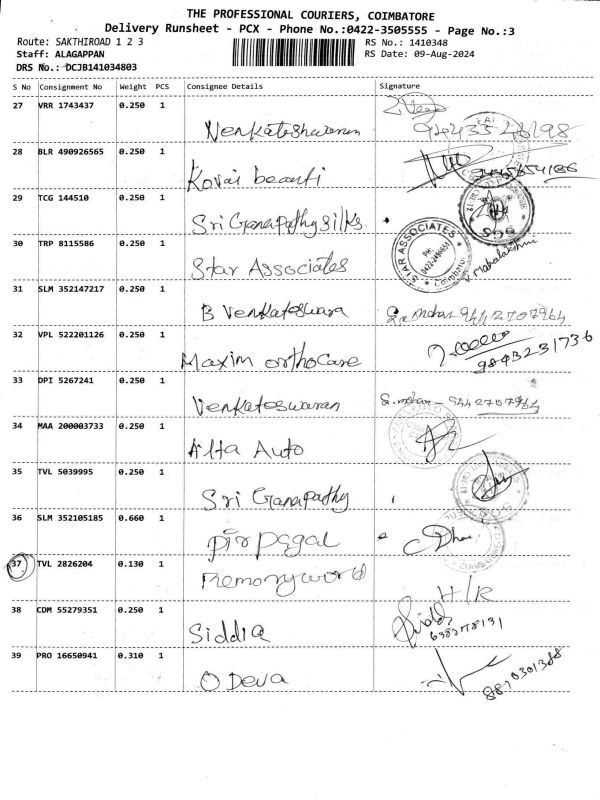 THE PROFESSIONAL COURIERS, COIMBATORE
Delivery Runsheet - PCX - Phone No.:0422-3505555 - Page No.:3
Route: SAKTHIROAD 1 2 3 RS No.: 1410348
Staff: ALAGAPPAN RS Date: 09-Aug-2024
DRS No.: DCJB141034803
S No Consignment No Weight PCS Consignee Details Signature
27 VRR 1743437 0.250 1
Venkateshwaran
28 BLR 490926565 0.250 1
Kovai beauti
29 TCG 144510 0.250 1
Sri Ganapathy silks
30 TRP 8115586 0.250 1
Star Associates STAR ASSOCIATES V. Mahalakshmi
31 SLM 352147217 0.250 1
B Venkateswara 944 2707964
32 VPL 522201126 0.250 1
Maxim orthocare 9843231736
33 DPI 5267241 0.250 1
Venkateswaran S. mohan - 944 2707964
34 MAA 200003733 0.250 1
Alta Auto
35 TVL 5039995 0.250 1
Sri Ganapathy
36 SLM 352105185 0.660 1
37 TVL 2826204 0.130 1
Memory world
H/R
38 CDM 55279351 0.250 1
Siddia
39 PRO 16650941 0.310 1
O Deva 8870301388